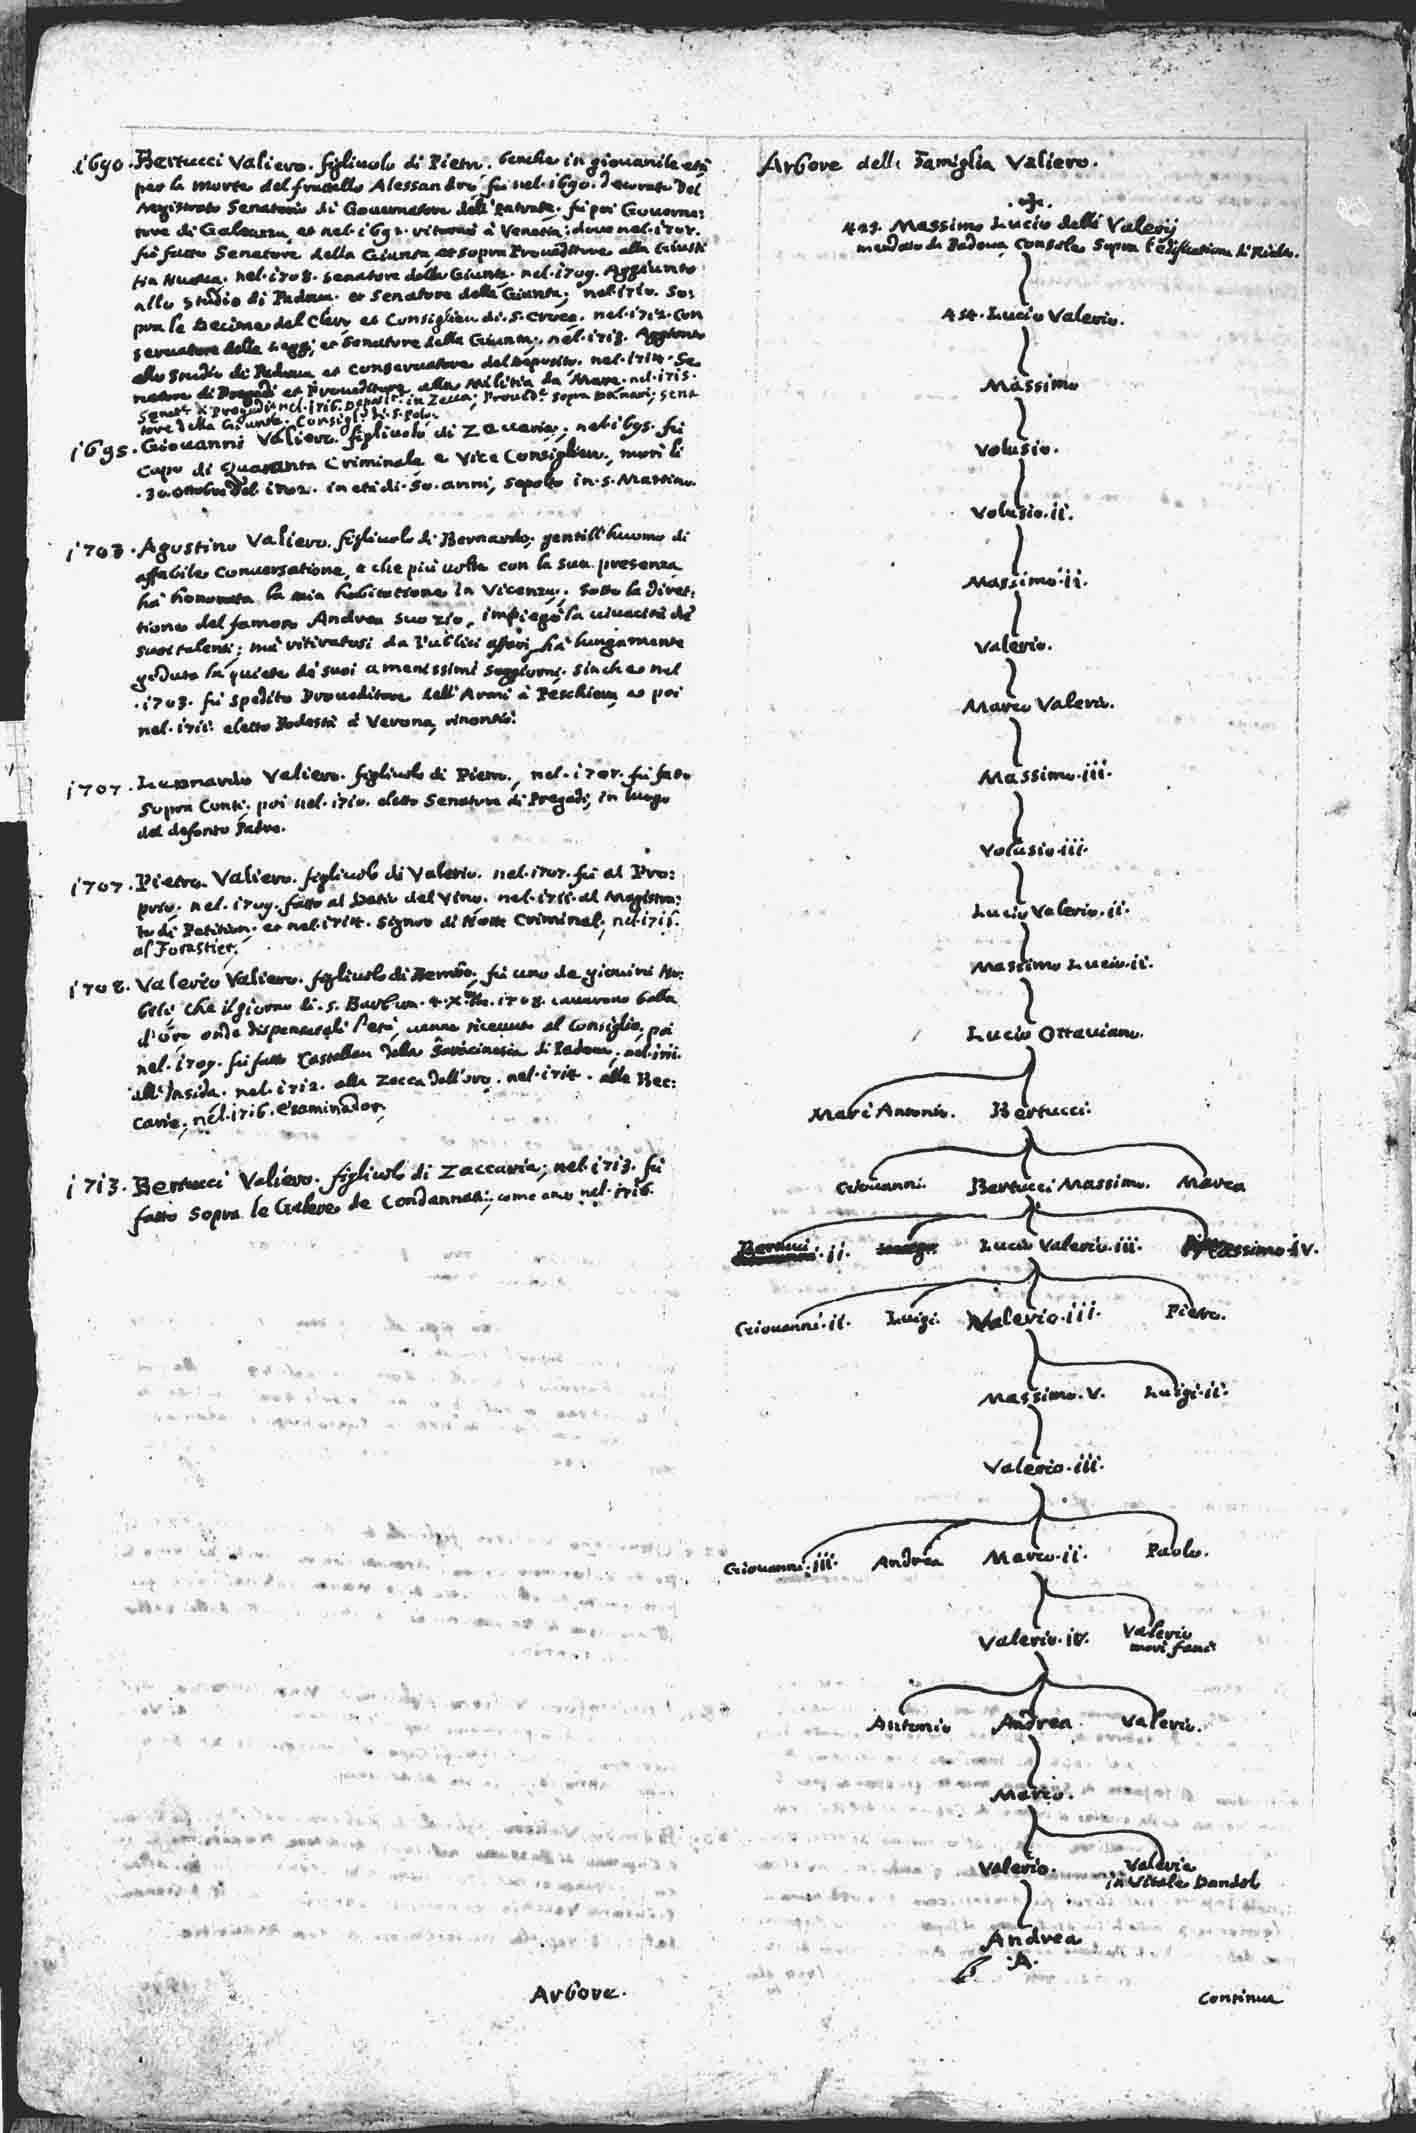 1690. Bertucci Valiero. figliuolo di Pietro. benche in giovanile età
per la morte del fratello Alessandro, fù nel. 1690. decorato del
Magistrato Senatorio di Gouernatore dell' Entrate. fù poi Gouerna:
tore di Galeazza, et nel. 1692. ritornò à Venetia; doue nel. 1707.
fù fatto Senatore della Giunta, et sopra Proueditore alla Giusti
tia Nuoua. nel. 1708. Senatore della Giunta. nel. 1709. Aggiunto
allo Studio di Padoua. et Senatore della Giunta; nel. 1710. So:
pra le Decime del Clero et Consiglier di. S. Croce. nel. 1712. Con
seruatore delle Leggi, et Senatore della Giunta; nel. 1713. Aggiunto
allo Studio di Padoua et Conseruatore del Deposito. nel. 1714. Se
natore di Pregadi et Proueditore alla Militia da Mare. nel. 1715.
Senatr. di Pregadi. nel. 1716. in Zecca; Prouedr. sopra Danari; Sena
tore della Giunta. Consigl. di. S. Polo.
1695. Giouanni Valiero. figliuolo di Zaccaria; nel. 1695. fù
Capo di Quaranta Criminale e Vice Consiglier, morì li
. 30. ottobre del. 1702. in età di. 50. anni, sepolto in. S. Martino.
1703. Agustino Valiero. figliuolo di Bernardo, gentill'huomo di
affabile Conuersatione, e che più uolte con la sua presenza
hà honorata la mia habitatione in Vicenza; Sotto la diret:
tione del famoso Andrea suo zio, impiegò la uiuacità de
suoi talenti; mà ritiratosi da Publici affari, hà lungamente
goduta la quiete de suoi amenissimi Soggiorni. Sinche nel
. 1703. fù spedito Proueditore dell'Armi à Peschiera, et poi
nel. 1711. eletto Podestà à Verona, rinontiò.
1707. Leonardo Valiero. figliuolo di Pietro, nel. 1707. fù fatto
Sopra Conti, poi nel. 1710. eletto Senatore di Pregadi, in luogo
del defonto Padre.
1707. Pietro. Valiero. figliuolo di Valerio. nel. 1707. fù al Pro:
prio. nel. 1709. fatto al Datio del Vino. nel. 1711. al Magistra:
to di Petition. et nel. 1714. Signor di Notte Criminal, nel. 1716.
al Forastier.
1708. Valerio Valiero. figliuolo di Bembo. fù uno de giouini No:
bili, che il giorno di. S. Barbara. 4. Xbre. 1708. cauarono balla
d'oro onde dispensatali l'età, uenne riceuuto al Consiglio, poi
nel. 1709. fù fatto Castellan della Saracinesca di Padoua, nel. 1711.
all'Insida. nel. 1712. alla Zecca dell'oro. nel. 1714. alle Bec:
carie, nel. 1716. Esaminador.
1713. Bertucci Valiero. figliuolo di Zaccaria; nel. 1713. fù
fatto Sopra le Galere de Condannati; come anco nel. 1716.
Arbore.
Arbore della Famiglia Valiero.
Massimo Lucio delli Valerij
mandato da Padoua Console Sopra l'edificatione di Rialto.
454. Lucio Valerio.
Massimo
Volusio.
Volusio. ii.
Massimo. ii.
Valerio.
Marco Valerio.
Massimo. iii.
Volusio. iii.
Lucio Valerio. ii.
Massimo Lucio. ii.
Lucio Ottauiano.
Marc'Antonio. Bertucci.
Giouanni. Bertucci Massimo. Marco
Bertucci. ii. Lucio Valerio. iii. Massimo. iv.
Giouanni. ii. Luigi. Valerio. iii. Pietro.
Massimo. v. Luigi. ii.
Valerio. iii.
Giouanni. iii. Andrea Marco. ii. Paolo.
Valerio. iv. Valerio
Antonio Andrea Valerio.
Marco.
Valerio. Valeria
in Vitale Dandolo
Andrea
.A.
Continua